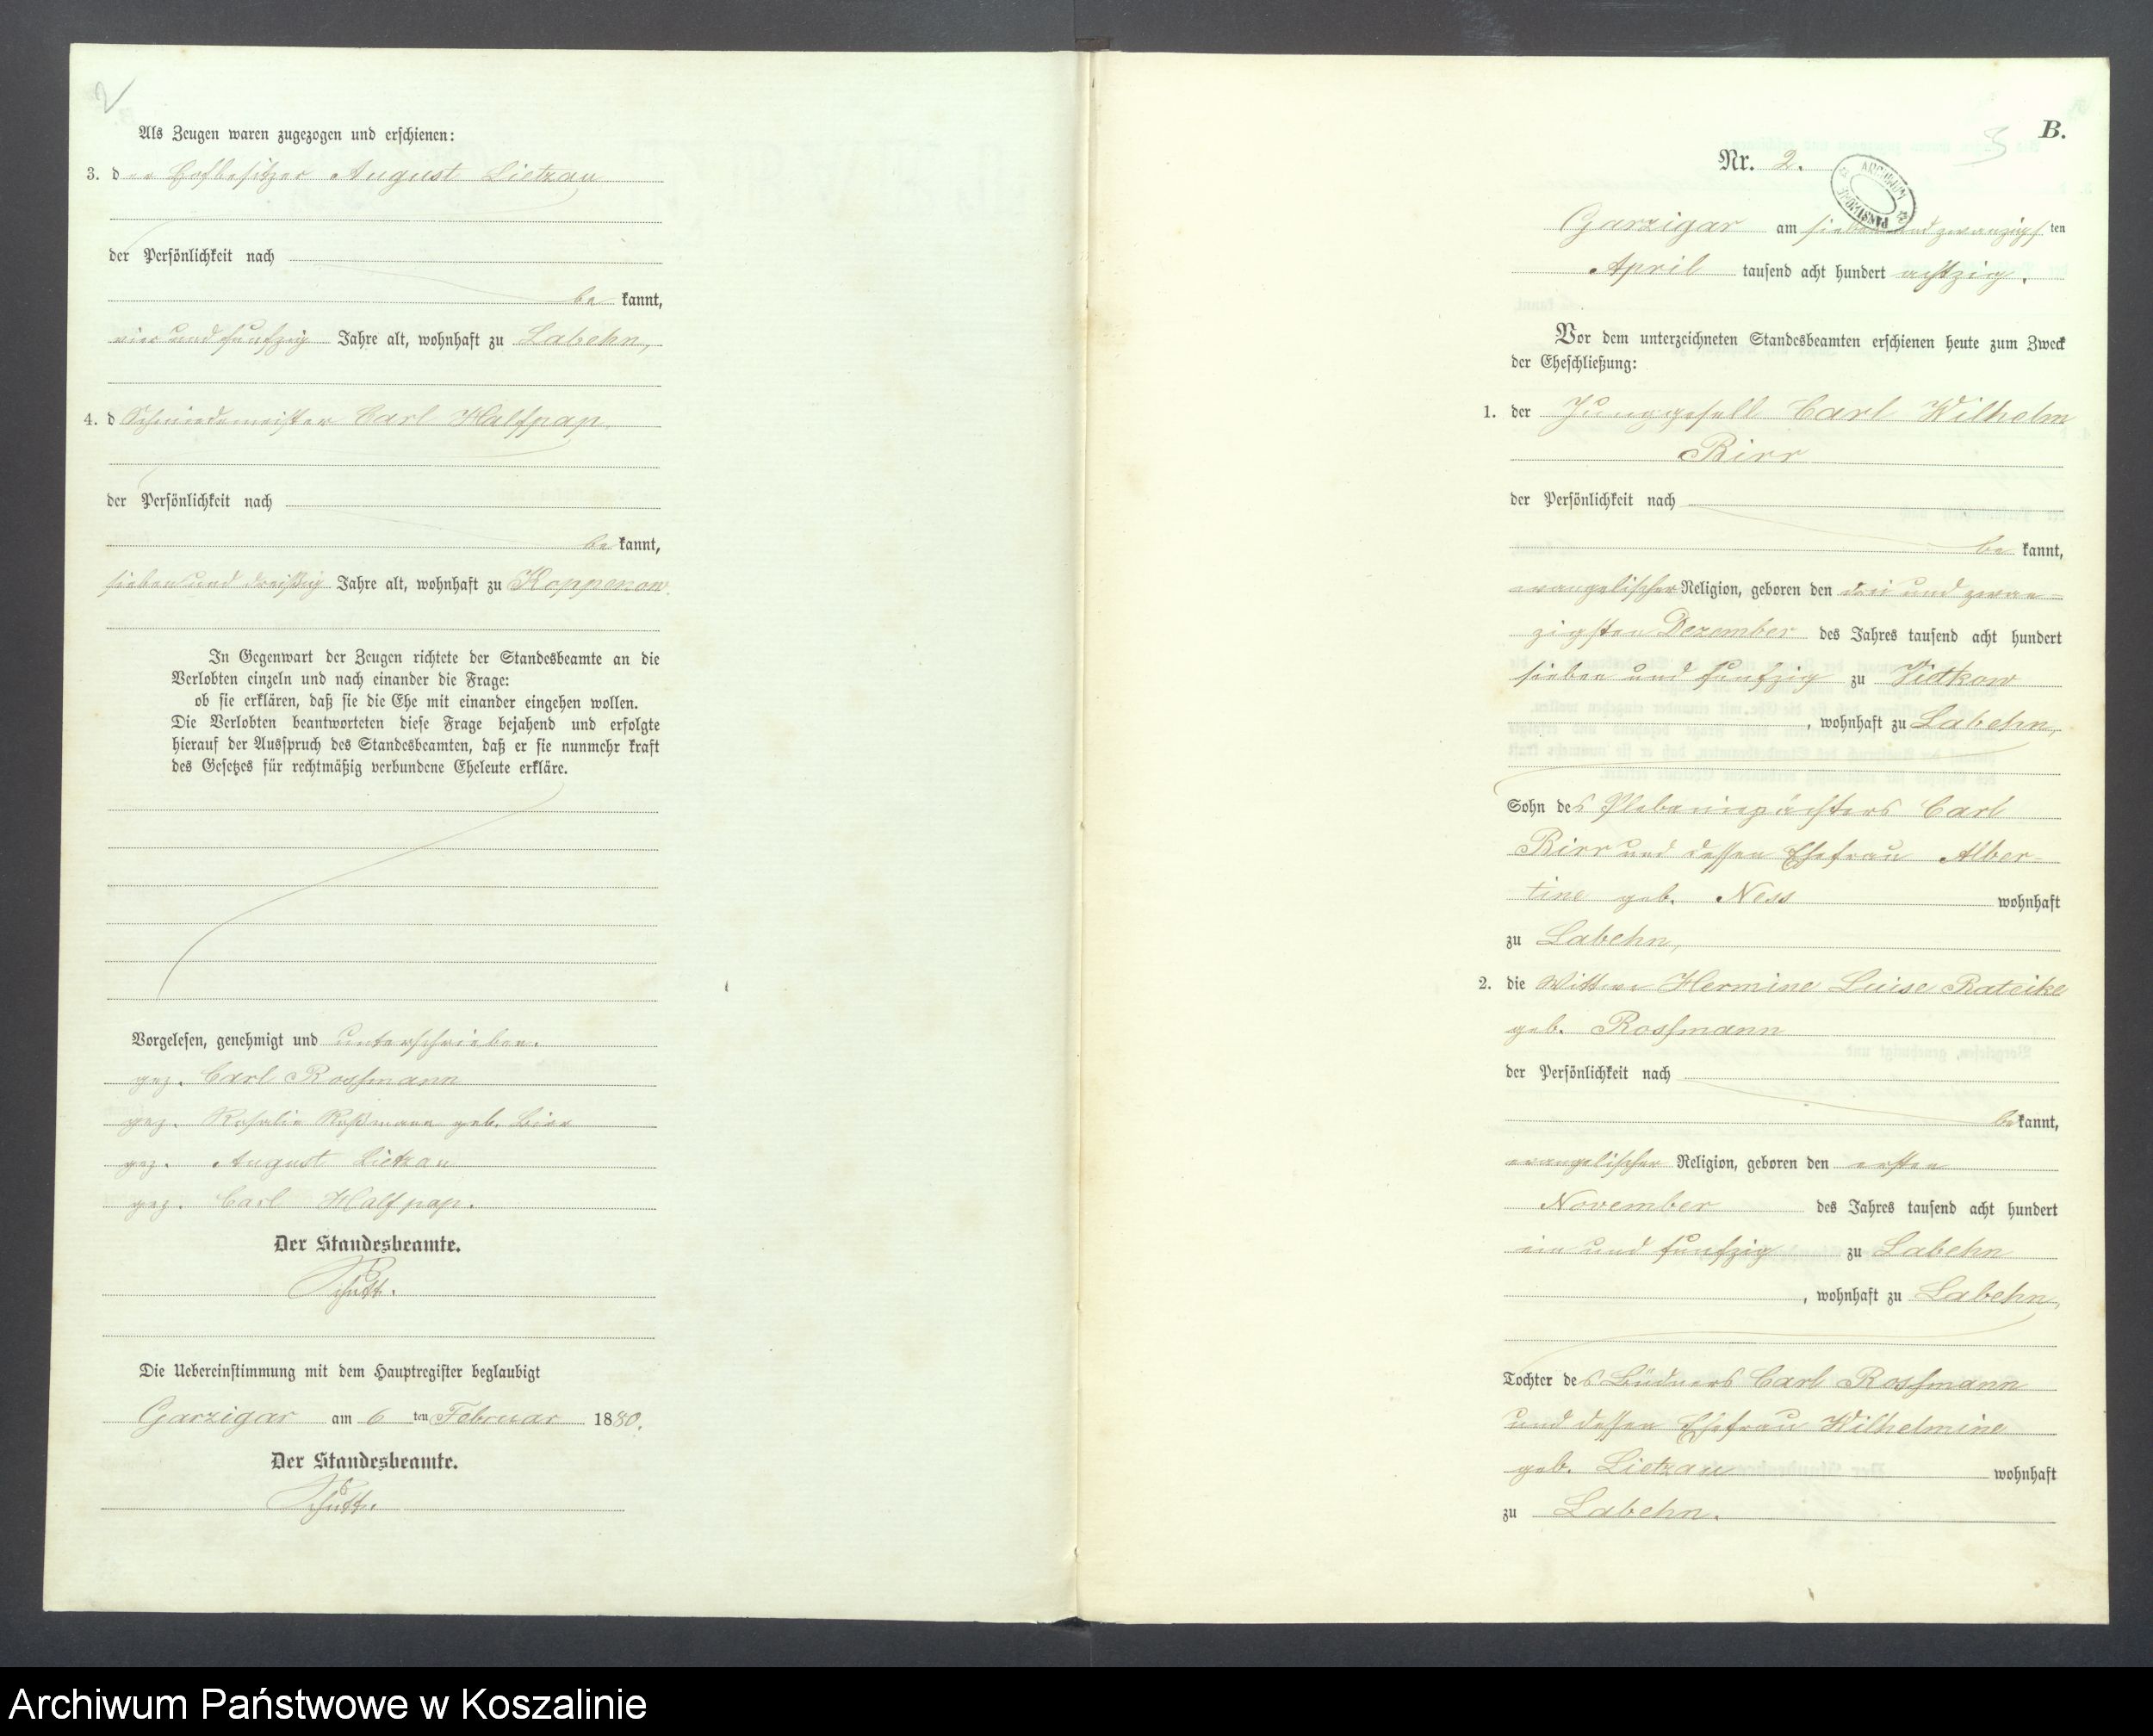 2
Als Zeugen waren zugezogen und erschienen:
3. der Hofbesitzer August Lietzau
der Persönlichkeit nach
bekannt,
vier und funfzig Jahre alt, wohnhaft zu Labehn,
4. d Schmiedemeister Carl Halfpap,
der Persönlichkeit nach
bekannt,
sieben und dreißig Jahre alt, wohnhaft zu Koppenow.
In Gegenwart der Zeugen richtete der Standesbeamte an die
Verlobten einzeln und nach einander die Frage:
ob sie erklären, daß sie die Ehe mit einander eingehen wollen.
Die Verlobten beantworteten diese Frage bejahend und erfolgte
hierauf der Ausspruch des Standesbeamten, daß er sie nunmehr kraft
des Gesetzes für rechtmäßig verbundene Eheleute erkläre.
Vorgelesen, genehmigt und unterschrieben.
gez. Carl Rossmann
gez. Rosalie Roßmann geb. Birr
gez. August Lietzau
gez. Carl Halfpap.
Der Standesbeamte.
Schutt.
Die Uebereinstimmung mit dem Hauptregister beglaubigt
Garzigar am 6 ten Februar 1880.
Der Standesbeamte.
Schutt.
B.
3
Nr. 2.
ARCHIWUM PAŃSTWOWE
Garzigar am sieben und zwanzigsten
April tausend acht hundert achtzig.
Vor dem unterzeichneten Standesbeamten erschienen heute zum Zweck
der Eheschließung:
1. der Junggesell Carl Wilhelm
Birr
der Persönlichkeit nach
bekannt,
evangelischer Religion, geboren den drei und zwan-
zigsten Dezember des Jahres tausend acht hundert
sieben und funfzig zu Vietkow
, wohnhaft zu Labehn,
Sohn des Carl
Birr und dessen Ehefrau Alber-
tine geb. Ness wohnhaft
zu Labehn,
2. die Wittwe Hermine Luise Rateike
geb. Rossmann
der Persönlichkeit nach
bekannt,
evangelischer Religion, geboren den ersten
November des Jahres tausend acht hundert
ein und funfzig zu Labehn
, wohnhaft zu Labehn,
Tochter des Büdners Carl Rossmann
und dessen Ehefrau Wilhelmine
geb. Lietzau wohnhaft
zu Labehn.
Archiwum Państwowe w Koszalinie